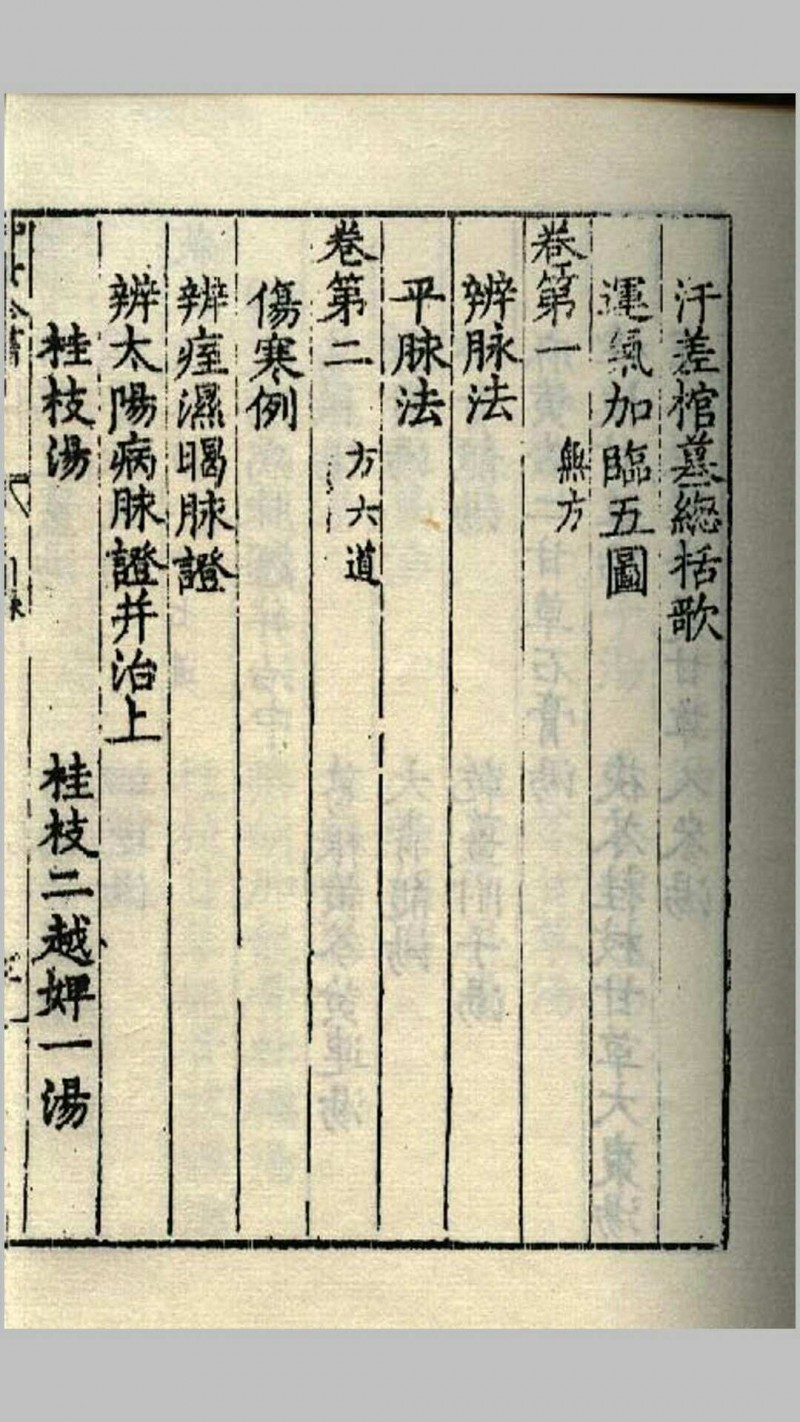 汗差棺墓總括歌
運氣加臨五圖
卷第一 無方
辨脉法
平脉法
卷第二 方六道
傷寒例
辨痓濕暍脉證
辨太陽病脉證并治上
桂枝湯 桂枝二越婢一湯